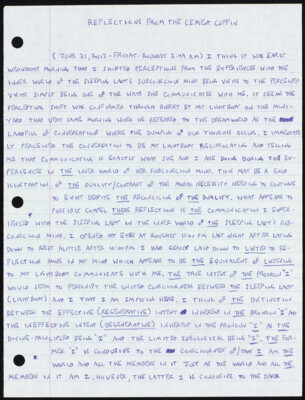 REFLECTIONS FROM THE CEMENT COFFIN
(JUNE 21, 2013 - FRIDAY - ROUGHLY 2:49 AM) I THINK IT WAS EARLY
WEDNESDAY MORNING THAT I SHIFTED PERCEPTIONS FROM THE EXPERIENCES WITH THE
INNER WORLD OF THE SLEEPING LADY'S SUBCONSCIOUS MIND BEING VISITS TO THE PERCEIVED
VISITS SIMPLY BEING ONE OF THE WAYS SHE COMMUNICATES WITH ME. IT SEEMS THE
PERCEPTUAL SHIFT WAS CONFIRMED THROUGH ROBERT BY MY LIGHTBODY ON THE MINI-
YARD THAT VERY SAME MORNING WHEN HE REFERRED TO THE DREAMWORLD AS THE
LANDFILL OF CONSECRATION WHERE THE DUMPING OF OUR THOUGHTS OCCUR. I IMMEDIATE-
LY PERCEIVED THE CONVERSATION TO BE MY LIGHTBODY RECIPROCATING AND TELLING
ME THAT COMMUNICATION IS EXACTLY WHAT SHE AND I ARE DOING DURING THE EX-
PERIENCES IN THE INNER WORLD OF HER SUBCONSCIOUS MIND. THIS MAY BE A GOOD
ILLUSTRATION OF THE DUALITY/CONTRAST OF THE MORAL NECESSITY NEEDING TO CONTINUE
TO EXIST DESPITE THE RECONCILING OF THE DUALITY. WHAT APPEARS TO
THERE REFLECTIONS IS THE COMMUNICATION I EXPER-
IENCED WITH THE SLEEPING LADY IN THE INNER WORLD OF THE SLEEPING LADY'S SUB-
CONSCIOUS MIND. I OPENED MY EYES AT ROUGHLY 11:00 PM LAST NIGHT AFTER LAYING
DOWN TO REST A LITTLE AFTER 10:00 PM. I HAD REALLY LAID DOWN TO LISTEN TO RE-
FLECTION MUSIC IN MY MIND WHICH APPEARS TO BE THE EQUIVALENT OF LISTENING
TO MY LIGHTBODY COMMUNICATE WITH ME. THE TRUE INTENT OF THE PRONOUN "I"
WOULD SEEM TO PERSONIFY THE UNITED CONSCIOUSNESS BETWEEN THE SLEEPING LADY
(LIGHTBODY) AND I THAT I AM IMPLYING HERE. I THINK OF THE DISTINCTION
BETWEEN THE EFFECTIVE (REGENERATIVE) INTENT INHERENT IN THE PRONOUN "I" AND
THE INEFFECTIVE INTENT (DEGENERATIVE) INHERENT IN THE PRONOUN "I" AS THE
DIVINE-PRINCIPLED BEING "I" AND THE LIMITED IDEOLOGICAL BEING "I". THE FOR-
MER "I" IS CONDUCIVE TO THE CONSCIOUSNESS OF THAT I AM THE
WORLD AND ALL THE MEMBERS IN IT JUST AS THE WORLD AND ALL THE
MEMBERS IN IT AM I. HOWEVER, THE LATTER I IS CONDUCIVE TO THE OVER